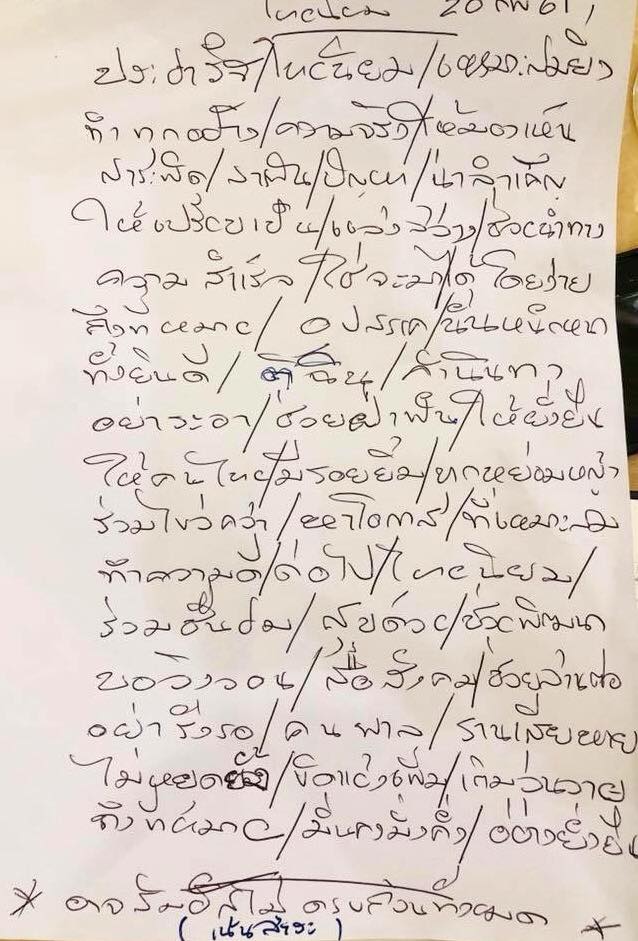 ไทยนิยม 20 กพ 61
ประชารัฐ/ไทยนิยม/เหมาะสมยิ่ง
ทำทุกอย่าง/ความจริง/ให้มาเห็น
สารพิด/ราคิน/ปัญหา/น่าลำเค็ญ
ให้เปรียบเป็น/แสงสว่าง/ช่วยนำทาง
ความสำเร็จ/ใช่จะมาได้โดยง่าย
ถึงที่หมาย/อุปสรรค/นั้นหนักหนา
ทั้งยินดี/ติฉิน/คำนินทา
อย่าระอา/ช่วยฝ่าฟัน/ให้ยั่งยืน
ให้คนไทย/มีรอยยิ้ม/ทุกหย่อมหญ้า
ร่วมไขว่คว้า/หาโอกาส/ที่เหมาะสม
ทำความดี/ต่อไป/ไทยนิยม/
ร่วมชื่นชม/สืบด้วย/ช่วยพัฒนา
ขอวิงวอน/สื่อสังคม/ช่วยสานต่อ
อย่ารีรอ/คนพาล/รานเสียหาย
ไม่หยุดยั้ง/ขัดแย้งเพิ่ม/เติมวุ่นวาย
ถึงที่หมาย/มั่นคงมั่งคั่ง/อย่างยั่งยืน
* อาจสัมผัสไม่ครบถ้วนทั้งหมด *
(เน้นสาระ)